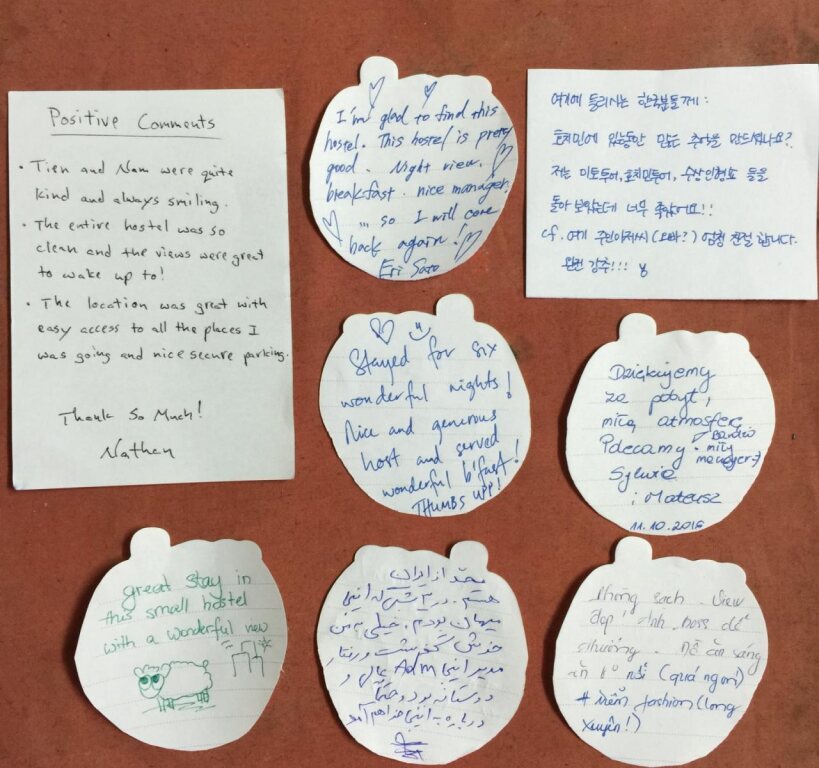 Positive Comments
• Tien and Nam were quite
kind and always smiling.
• The entire hostel was so
clean and the views were great
to wake up to!
• The location was great with
easy access to all the places I
was going and nice secure parking.
Thank So Much!
Nathan
I'm glad to find this
hostel. This hostel is pretty
good. Night view.
breakfast. nice manager.
... so I will come
back again!
Eri Sato
여기에 들리시는 한국분들께:
호치민에 있는동안 많은 추억을 만드셨나요?
저는 미토투어, 호치민투어, 수상인형쇼 등을
돌아 보았는데 너무 좋았어요!!
cf. 여기 주인아저씨(오빠?) 엄청 친절합니다.
완전 강추!!!
Stayed for six
wonderful nights!
Nice and generous
host and served
wonderful b'fast!
THUMBS UPP!
Dziękujemy
za pobyt,
miłą atmosferę
Polecamy • Bardzo
miły
menager
Sylwia
i Mateusz
11.10.2016
great stay in
this small hostel
with a wonderful view
محمد از ایران
هستم. در ۳ شبی که اینجا
میهمان بودم. خیلی به من
خوش گذشت و رفتار
مدیر اینجا Adm عالی و
دوستانه بود و حتماً
دوباره به اینجا خواهم آمد
Phòng sạch. View
đẹp. Anh boss dễ
thương. Đồ ăn sáng
(quá ngon)
# fashion (Long
Xuyên!)